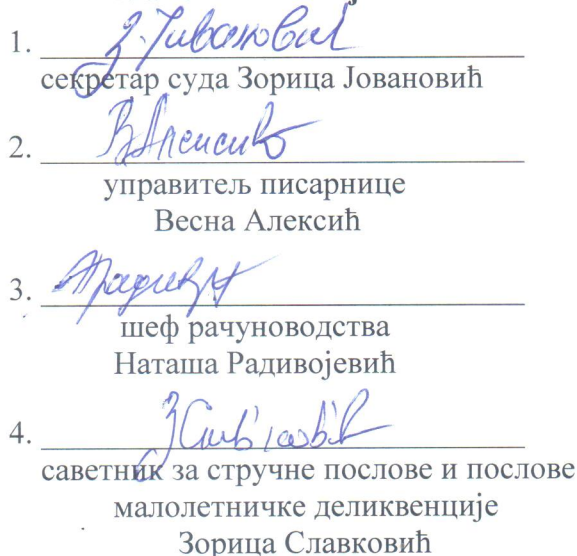 1.
секретар суда Зорица Јовановић
2.
управитељ писарнице
Весна Алексић
3.
шеф рачуноводства
Наташа Радивојевић
4.
саветник за стручне послове и послове
малолетничке деликвенције
Зорица Славковић